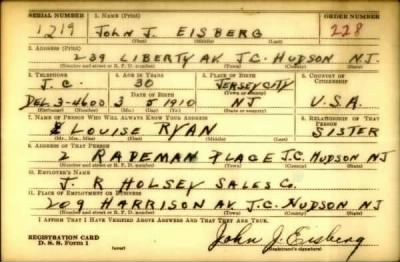 SERIAL NUMBER 1. NAME (Print) ORDER NUMBER
1219 JOHN J. EISBERG 228
(First) (Middle) (Last)
2. ADDRESS (Print)
239 LIBERTY AV. J.C. HUDSON N.J.
(Number and street or R. F. D. number) (Town) (County) (State)
3. TELEPHONE 4. AGE IN YEARS 5. PLACE OF BIRTH 6. COUNTRY OF CITIZENSHIP
J.C. 30 JERSEY CITY
DATE OF BIRTH (Town or county)
DEL. 3-4600 3 5 1910 NJ U.S.A.
(Exchange) (Number) (Mo.) (Day) (Yr.) (State or country)
7. NAME OF PERSON WHO WILL ALWAYS KNOW YOUR ADDRESS 8. RELATIONSHIP OF THAT PERSON
LOUISE RYAN SISTER
(Mr., Mrs., Miss) (First) (Middle) (Last)
9. ADDRESS OF THAT PERSON
2 RADEMAN PLACE J.C. HUDSON NJ
(Number and street or R. F. D. number) (Town) (County) (State)
10. EMPLOYER'S NAME
J. R. HOLSEY SALES Co.
11. PLACE OF EMPLOYMENT OR BUSINESS
209 HARRISON AV. J.C. HUDSON NJ
(Number and street or R. F. D. number) (Town) (County) (State)
I AFFIRM THAT I HAVE VERIFIED ABOVE ANSWERS AND THAT THEY ARE TRUE.
REGISTRATION CARD
D. S. S. Form 1 (over) John J. Eisberg
(Registrant's signature)